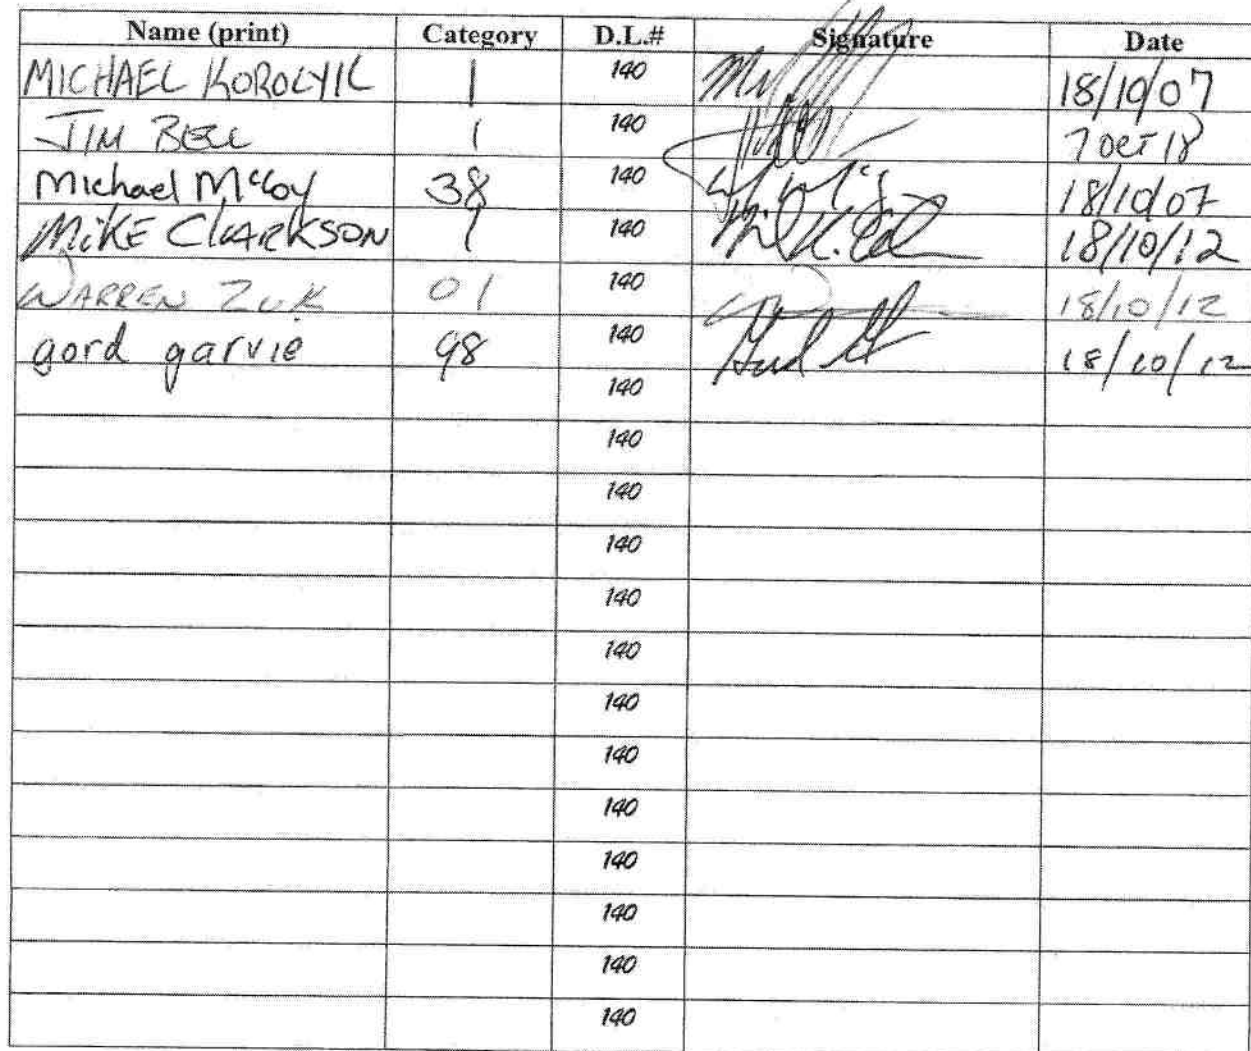 Name (print) Category D.L.# Signature Date
MICHAEL KOROLYK 1 140 18/10/07
JIM BELL 1 140 7 OCT 18
Michael McCoy 38 140 18/10/07
MIKE CLARKSON 1 140 18/10/12
WARREN ZUK 01 140 18/10/12
gord garvie 98 140 18/10/12
140
140
140
140
140
140
140
140
140
140
140
140
140